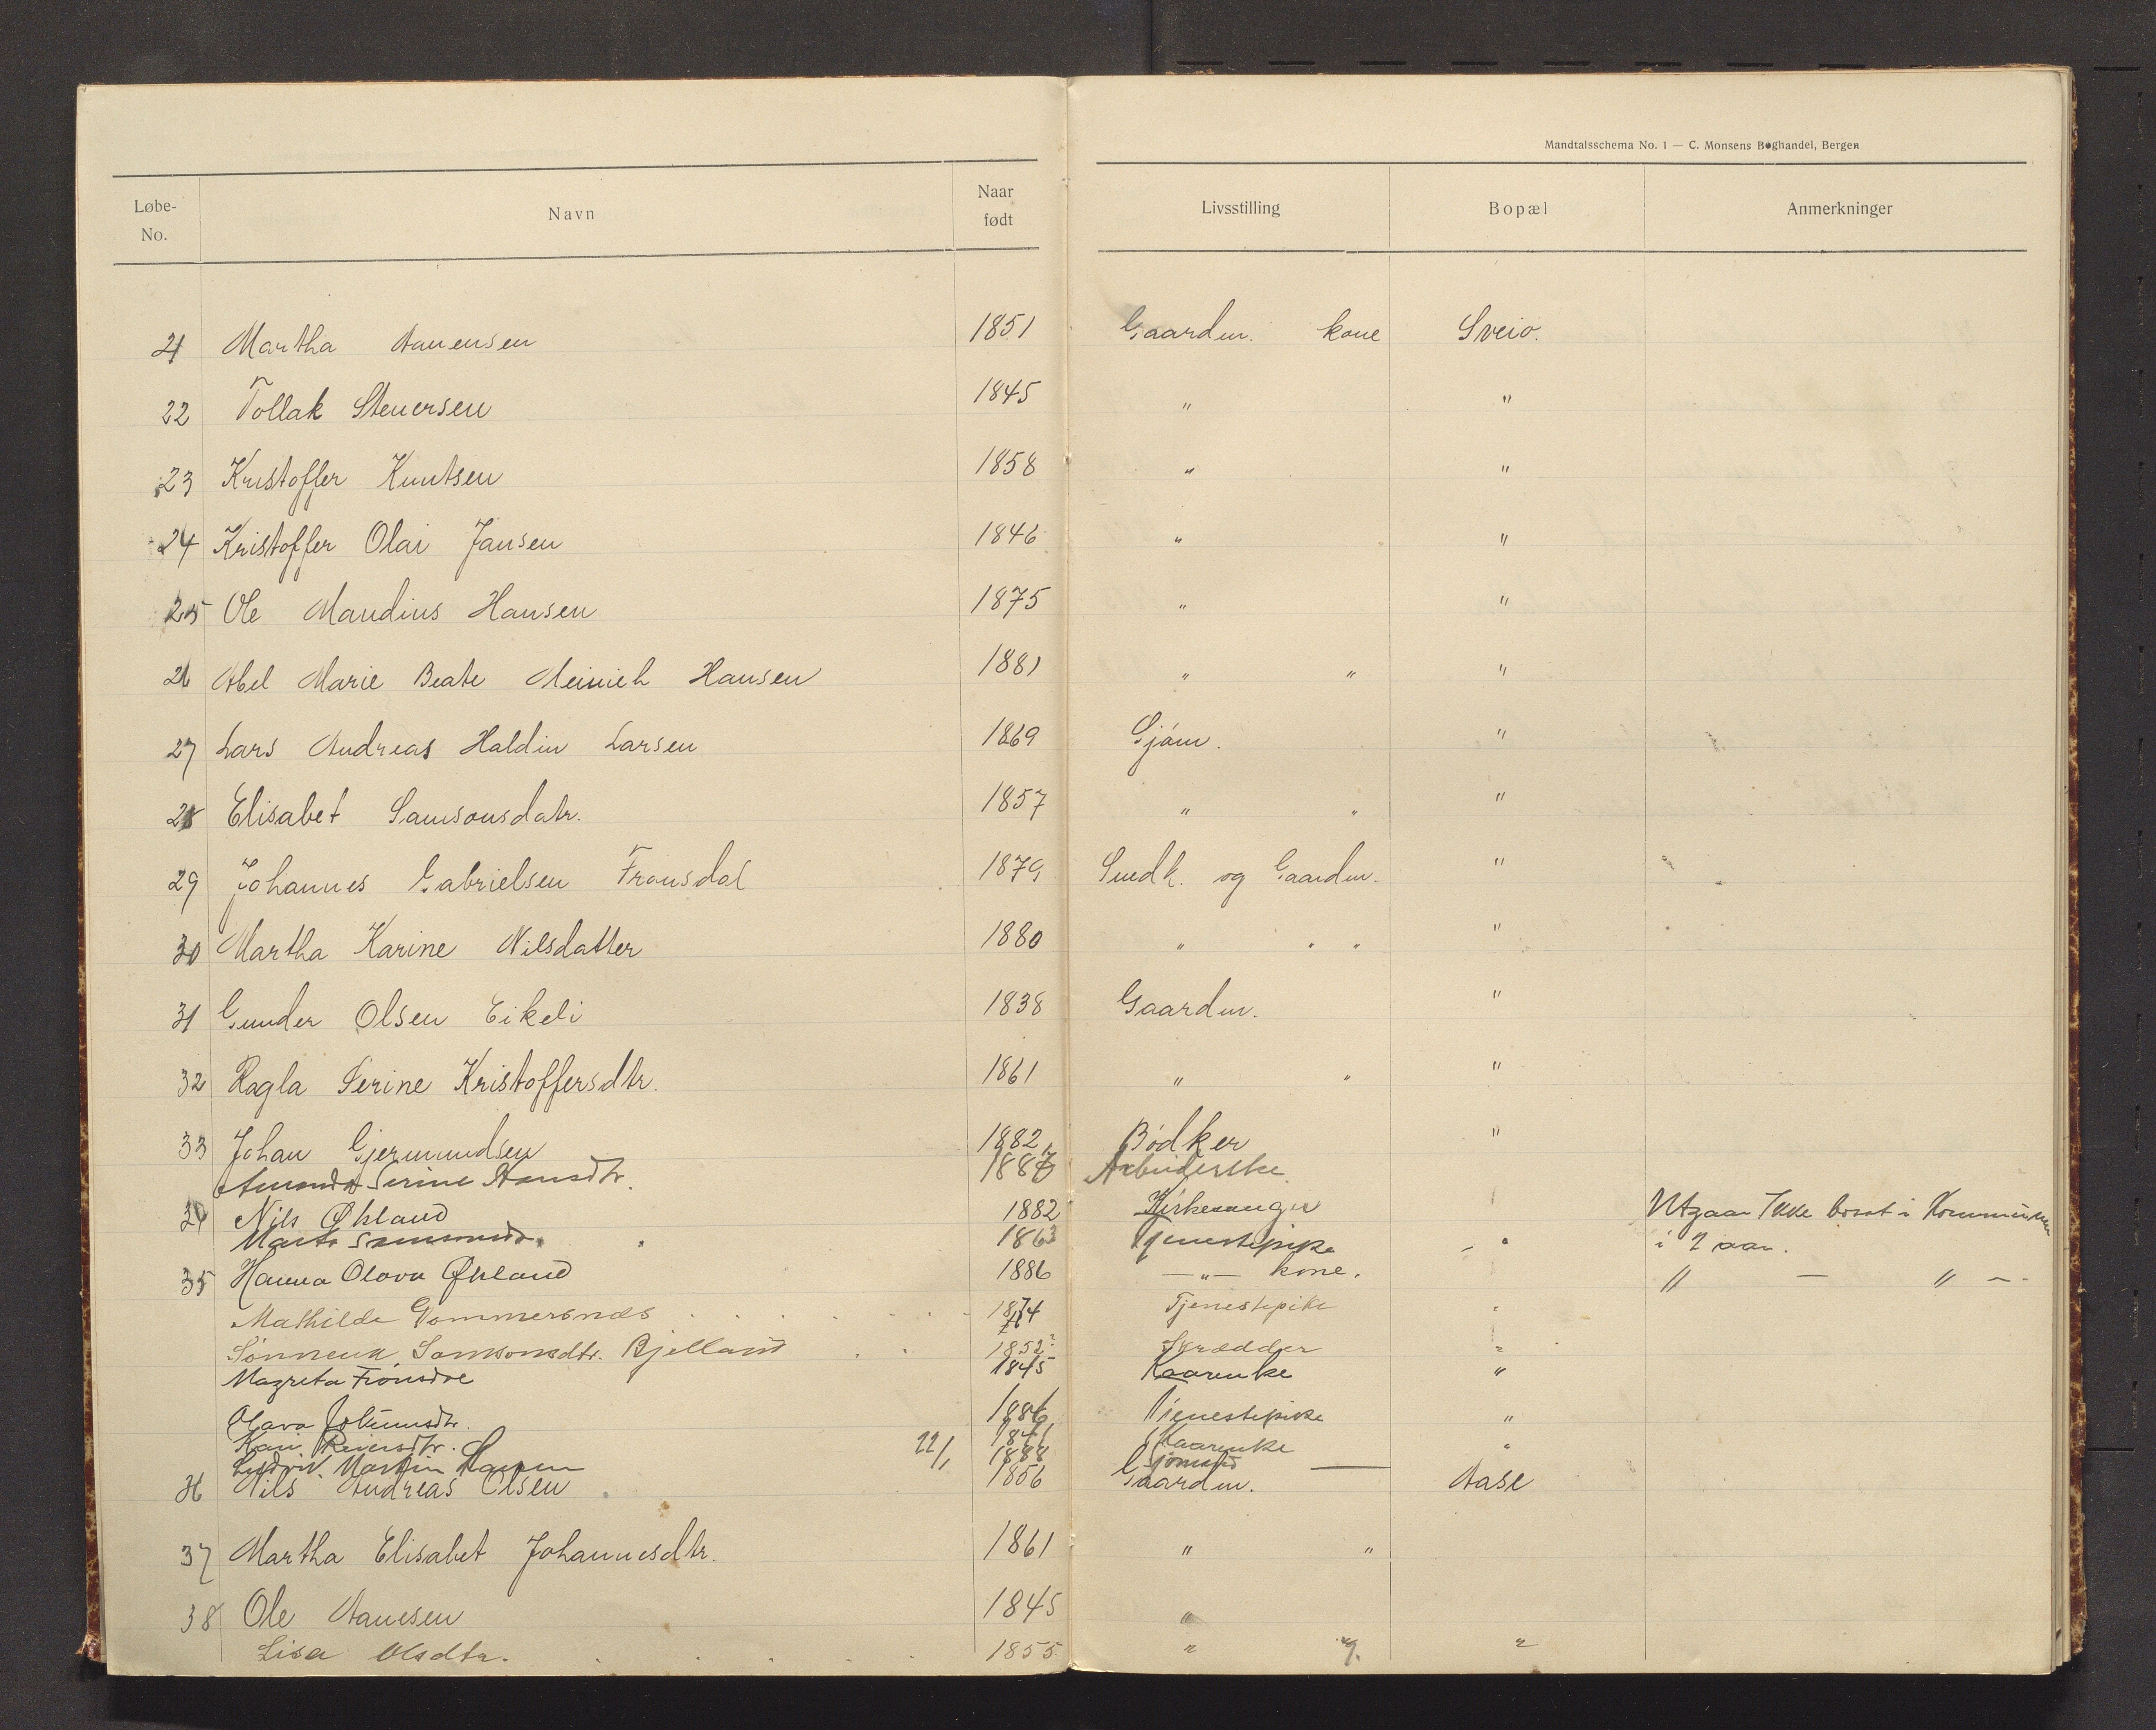 Mandtalsschema No. 1 — C. Monsens Boghandel, Bergen
Løbe-No. Navn Naar født Livsstilling Bopæl Anmerkninger
21 Martha Aanensen 1851 Gaardm. kone Sveio.
22 Tollak Stenersen 1845 " "
23 Kristoffer Knutsen 1858 " "
24 Kristoffer Olai Jansen 1846 " "
25 Ole Mandius Hansen 1875 " "
26 Abel Marie Beate Meinich Hansen 1881 " " "
27 Lars Andreas Haldin Larsen 1869 Sjøm. "
28 Elisabet Samsonsdatr. 1857 " " "
29 Johannes Gabrielsen Fronsdal 1879 Snedk. og Gaardm. "
30 Martha Karine Nilsdatter 1880 " " " "
31 Gunder Olsen Eikeli 1838 Gaardm. "
32 Ragla Serine Kristoffersdtr. 1861 " " "
33 Johan Gjermundsen 1882 Bødker "
Serine 1887 Arbeiderske
34 Nils Økland 1882 Kirkesanger Utgaar Ikke bosat i Kommunen
1863 Tjenestepike " i 2 aar.
35 Hanna Olava Økland 1886 — " — kone. " — " —
Mathilde Vommersnæs 1874 Tjenestepike "
Samsonsdtr. Bjelland 1852 Skrædder "
Magreta 1845 Kaarenke "
Olava 1886 Tjenestepike "
Kari 1841 Kaarenke "
Ludvik Martin Hansen 22/1 1888 Sjømand
36 Nils Andreas Olsen 1856 Gaardm. Aase
37 Martha Elisabet Johannesdtr. 1861 " "
38 Ole Aanesen 1845 "
Lisa Olsdtr. 1855 " " "